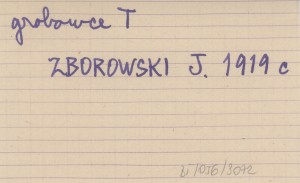 grobowce T
ZBOROWSKI J. 1919 c
bT/056/3072